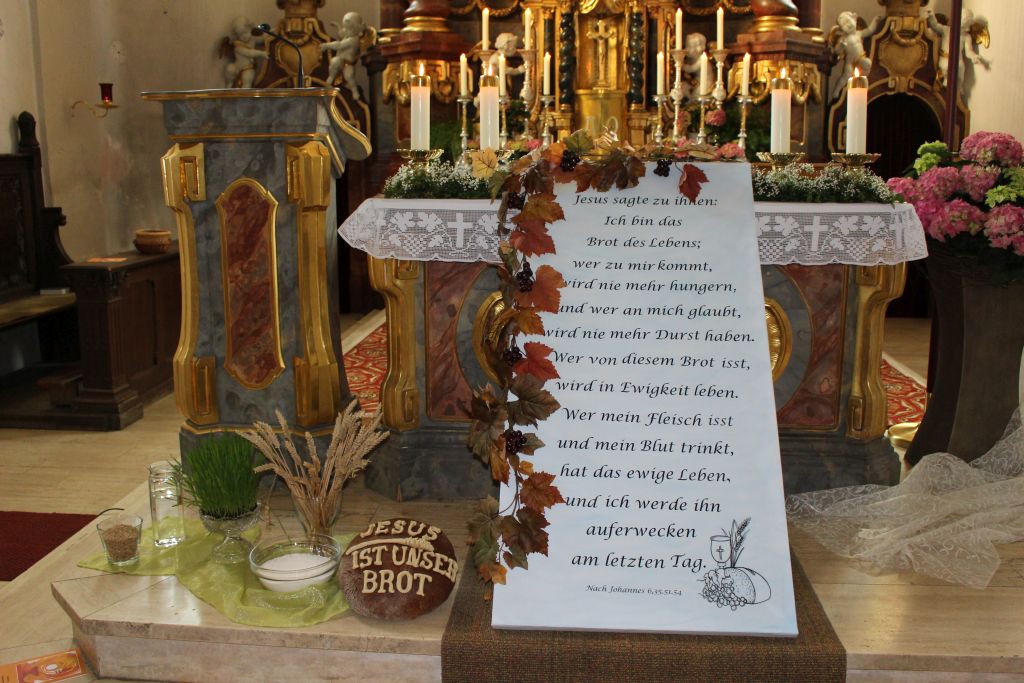 Jesus sagte zu ihnen:
Ich bin das
Brot des Lebens;
wer zu mir kommt,
wird nie mehr hungern,
und wer an mich glaubt,
wird nie mehr Durst haben.
Wer von diesem Brot isst,
wird in Ewigkeit leben.
Wer mein Fleisch isst
und mein Blut trinkt,
hat das ewige Leben,
und ich werde ihn
auferwecken
am letzten Tag.
Nach Johannes 6,35.51.54
JESUS
IST UNSER
BROT